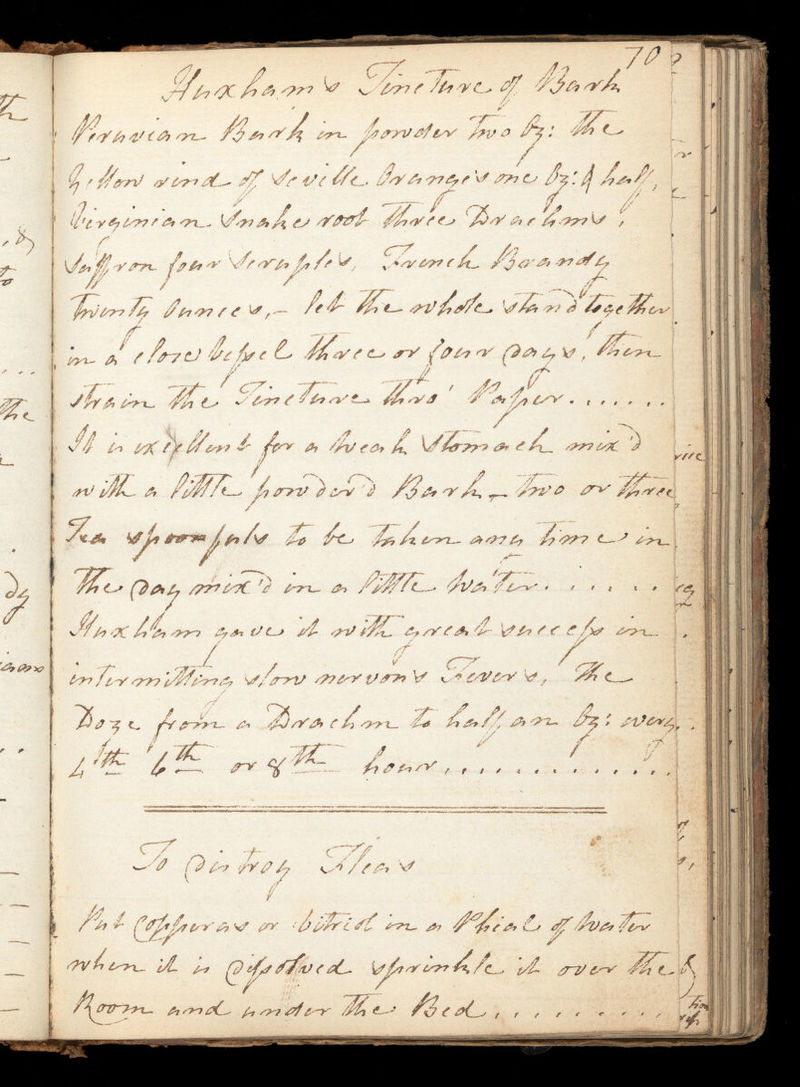 70
Huxham's Tincture of Bark
Peruvian Bark in powder two Oz: the
yellow rind of Seville Oranges one Oz: & half,
Virginian Snake root three Drachms,
Saffron four Scruples, French Brandy
twenty Ounces, – let the whole stand together
in a close Vessel three or four days, then
strain the Tincture thro' Paper.......
It is excellent for a weak Stomach mix'd
with a little powder'd Bark – two or three
Tea spoonfuls to be taken any time in
the day mix'd in a little Water......
Huxham gave it with great success in
intermitting slow nervous Fevers, the
Doze from a Drachm to half an Oz: every
4th 6th or 8th hour.............
To distroy Fleas
Put Copperas or Vitriol in a Phial of Water
when it is dissolved sprinkle it over the
Room and under the Bed..........